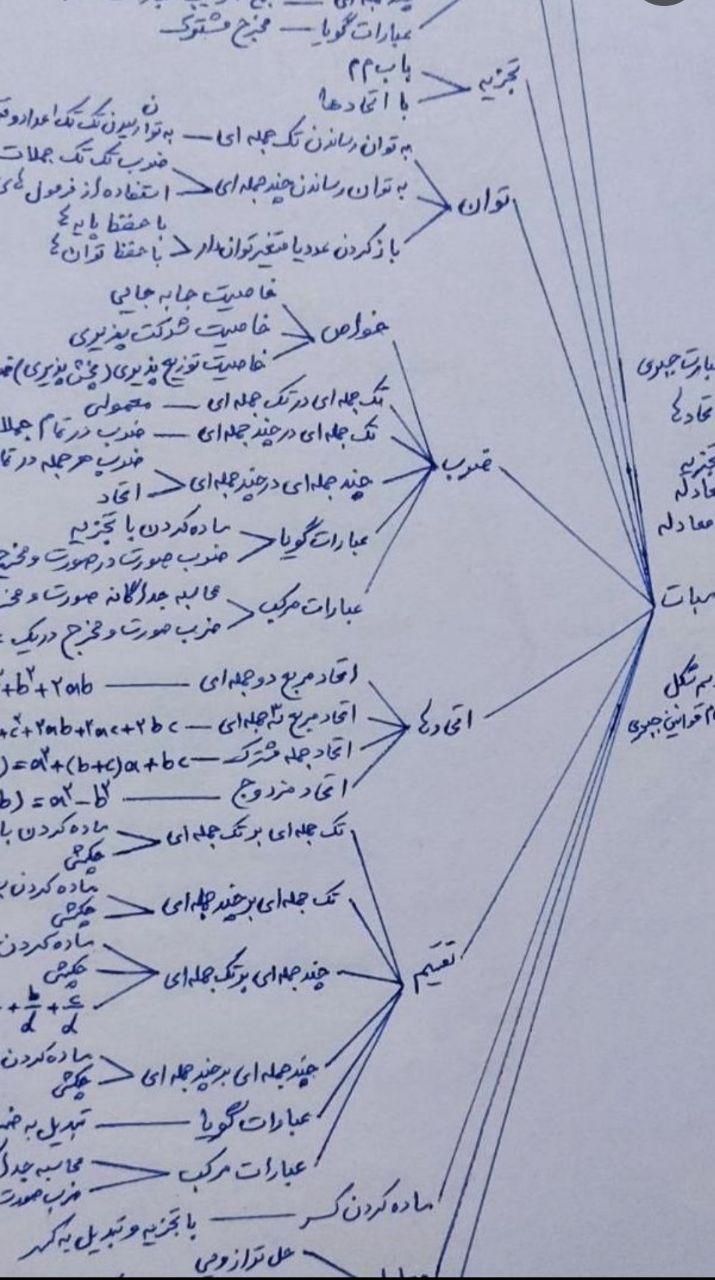 عبارات گویا — مخرج مشترک
تجزیه
با ب م م
با اتحادها
توان
به توان رساندن تک جمله ای — به توان رسیدن تک تک اعداد و
به توان رساندن چند جمله ای
ضرب تک تک جملات
استفاده از فرمول های
باز کردن عدد یا متغیر توان دار
با حفظ پایه ها
با حفظ توان ها
ضرب
خواص
خاصیت جابه جایی
خاصیت شرکت پذیری
خاصیت توزیع پذیری (پخش پذیری)
تک جمله ای در تک جمله ای — معمولی
تک جمله ای در چند جمله ای — ضرب در تمام
چند جمله ای در چند جمله ای
ضرب هر جمله در
اتحاد
عبارات گویا
ساده کردن با تجزیه
ضرب صورت در صورت و
عبارات مرکب
محاسبه جداگانه صورت و
ضرب صورت و مخرج در یک
اتحادها
اتحاد مربع دو جمله ای — +b²+۲ab
اتحاد مربع سه جمله ای — +c²+۲ab+۲ac+۲bc
اتحاد جمله مشترک — )=a²+(b+c)a+bc
اتحاد مزدوج — b)=a²-b²
تقسیم
تک جمله ای بر تک جمله ای
ساده کردن با
چکشی
تک جمله ای بر چند جمله ای
ساده کردن
چکشی
چند جمله ای بر تک جمله ای
ساده کردن
چکشی
+ b/d + c/d
چند جمله ای بر چند جمله ای
ساده کردن
چکشی
عبارات گویا — تبدیل به
عبارات مرکب
محاسبه
ضرب صورت
ساده کردن کسر — با تجزیه و تبدیل به
حل توازوجی
جبری
تجزیه
معادله
معادله
شکل
قوانین جبری